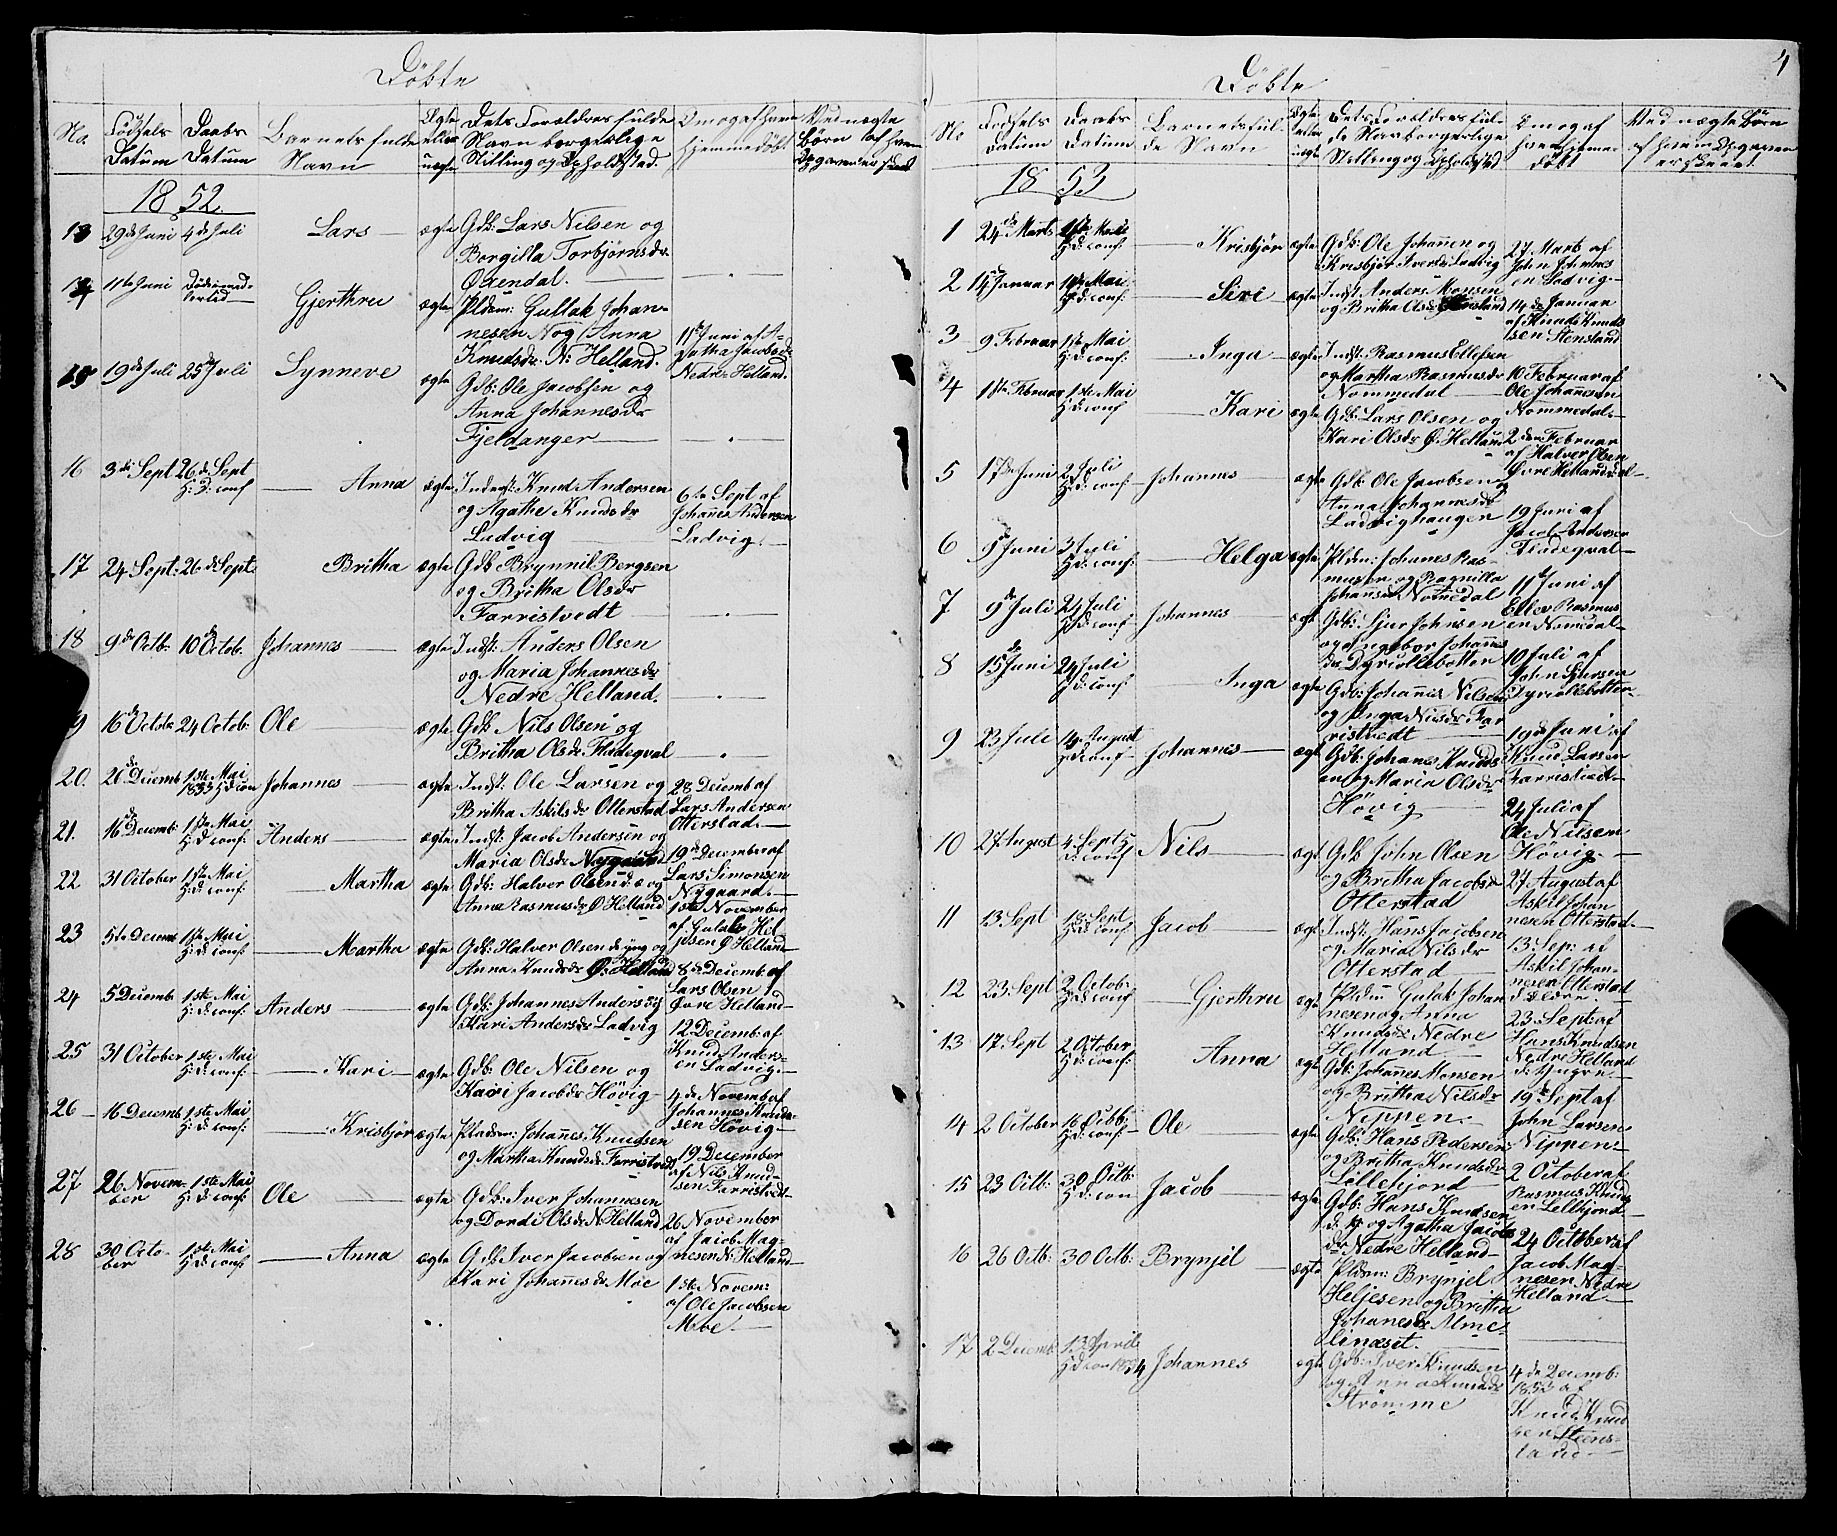 Döbte
No. Födsels Datum Daabs Datum Barnets fulde Navn Ægte eller uægte Dets Forældres fulde Navn borgerlige Stilling og Opholdsted. Om og af hvem hjemmedöbt Ved uægte Börn af hvem Opgaven er skeet
1852.
13 29 de Juni 4 de Juli Lars ægte Gdb: Lars Nilsen og
Borgilla Torbjörnsdr
Oxendal.
14 11te Juni Gjerthru ægte Pldsm: Gullak Johan-
nesen N og Anna
Knudsdr. N: Helland. 11te Juni af A-
gatha Jacobsdr
Nedre Helland.
15 19 de Juli 25 Juli Synneve ægte Gdb: Ole Jacobsen og
Anna Johannesdr
Fjeldanger
16 3 de Sept 26 de Sept
H: D: conf Anna ægte Inderst: Knud Andersen
og Agathe Knudsdr
Ladvig 6te Sept af
Johannes Andersen
Ladvig.
17 24 Sept: 26 de Sept. Britha ægte Gdb Brynnil Bergsen
og Britha Olsdr
Farristvedt
18 9 de Octb. 10 Octob. Johannes ægte Indst: Anders Olsen
og Maria Johannesdr
Nedre Helland.
19 16 de Octob 24 Octob. Ole ægte Gdb Nils Olsen og
Britha Olsdr Flödeqval
20. 26 Decemb 1ste Mai
1853 H:d:con Johannes ægte Indst: Ole Larsen og
Britha Askilsdr Otterstad 28 Decemb af
Lars Andersen
Otterstad.
21. 16 Decemb 1ste Mai
H:d:conf: Anders ægte Indst: Jacob Andersen og
Maria Olsdr Nygaard 19 December af
Lars Simonsen
Nygaard.
22 31 October 1ste Mai
H:d:conf: Martha ægte Gdb: Halver Olsen d.æ og
Anna Rasmusdr Ö Helland 1ste November
af Gulak Hel-
jesen Ö Helland
23 5te Decemb 1ste Mai
H:d:conf: Martha ægte Gdb: Halver Olsen d: yng og
Anna Knudsdr Ö: Helland 8 de Decemb: af
Lars Olsen
Övre Helland
24 5 Decemb 1ste Mai
H:d:conf: Anders ægte Gdb: Johannes Anders og
Kari Andersdr Ladvig 12 Decemb: af
Knud Anders-
en Ladvig.
25 31 October 1ste Mai
H:d:conf: Kari ægte Gdb: Ole Nilsen og
Kari Jacobdr Hövig 4 de November af
Johannes Knud-
sen Hövig
26 16 Decemb 1ste Mai
H:d:conf: Krisbjör ægte Pladsm: Johannes Knudsen
og Martha Knudsdr Farristvedt 19 December
af Nils Knud-
sen Farristvedt
27 26 Novem-
ber 1ste Mai
H:d:conf: Ole ægte Gdb: Iver Johannesen
og Dordi Olsdr N Helland 26 November
af Jacob Mag-
nesen N: Helland
28 30 Octo-
ber 1ste Mai
H:d:conf Anna ægte Gdb: Iver Jacobsen og
Kari Johannesdr Moe 1ste Novem:
af Ole Jacobsen
Moe.
4
Döbte
No Födsels Datum Daabs Datum Barnets ful-
de Navn Ægte eller uægte Dets Forældres ful-
de Navn borgerlige
Stilling og Opholdsted Om og af
hvem hjemme
döbt Ved uægte Börn
af hvem Opgaven
er skeet
1853
1 24 de Marts H:d:conf: Krisbjör ægte Gdb: Ole Johannen og
Krisbjör Iversdr Ladvig 27 Marts af
John Johannes
en Ladvig
2 15 Januar 1ste Mai
H:d:conf: Siri ægte Indst: Anders Monsen
og Britha Olsdr 14 de Januar
af Knud Knud-
sen Stensland
3 9 Februar 1ste Mai
H:d:conf: Inga ægte Indst: Rasmus Ellefsen
og Martha Rasmusdr
Nommedal 10 Februar af
Ole Johannsen
Nommedal
4 1ste Februar 1ste Mai
H:d:conf Kari ægte Gdb: Lars Olsen og
Kari Olsdr Ö: Helland 2 den Februar
af Halver Olsen
Övre Helland
5 17 de Juni 2 Juli
H:d:conf Johannes ægte Gdb: Ole Jacobsen og
Anna Johannesdr
Ladvighaugen 19 Juni af
Jacob Andersen
Flödeqval
6 9 Juni 3 Juli
H:d:conf: Helga ægte Pldsm: Johanes Ras-
musen og Ragnilla
Johansdr Nomedal 11 Juni af
Ellev Rasmus
en Nomedal
7 9 de Juli 24 Juli
H:d:conf: Johannes ægte Gdb: Sjur Johnsen
og Ingebor Johannes
dr Dyrcollebotten 10 Juli af
John Sjursen
Dyrcollebotten
8 15 de Juni 24 Juli
H:d:conf: Inga ægte Gdb: Johannes Nilsen
og Inga Nilsdr Far
ristvedt 19 de Juni af
Knud Larsen
Farristvedt
9 23 Juli 14 August
H:d:conf Johannes ægte Gdb: Johanes Knuds
en og Maria Olsdr
Hövig 24 Juli af
Ole Nilsen
Hövig
10 27 August 4 Sept
H:d:conf Nils ægt Gdb John Olsen
og Britha Jacobsdr
Otterstad 27 August af
Askil Johan
nesen Otterstad
11 13 Sept 18 Sept
H:d:conf Jacob ægt Indst: Hans Jacobsen
og Maria Nilsdr
Otterstad 13 Sep: af
Askil Johan-
nesen Otterstad
d: Eldre
12 23 Sept 2 Octob:
H:d:conf Gjerthru ægt Pldm Gulak Johan
nesen og Anna
Knudsdr Nedre
Helland 23 Sept: af
Hans Knudsen
Nedre Helland
d: Yngre
13 17 Sept 2 October
H:d:conf: Anna ægte Gdb: Johannes Monsen
og Britha Nilsdr
Neppen. 19 Sept af
John Larsen
Nippen
14 2 October 16 Octbr
H:d:conf: Ole ægte Gdb: Hans Pedersen
og Britha Knudsdr
Lillefjord 2 October af
Rasmus Knud
en Lellfjord
15 23 Octb: 30 Octb:
H:d:con Jacob ægte Gdb: Hans Knudsen
d: y og Agatha Jacobs
dr Nedre Helland 24 October af
Jacob Mag-
nesen Nedre
Helland
16 26 Octb: 30 Octb: Brynjel ægte Pldsm: Brynjel
Heljesen og Britha
Johanesdr Alme-
linæset.
17 2 Decemb 13 April
H:d:con 1854 Johannes ægte Gdb: Iver Knudsen
og Anna Knudsdr
Strömme 4 de Decemb:
1853 af
Knud Knud
sen Stens-
land